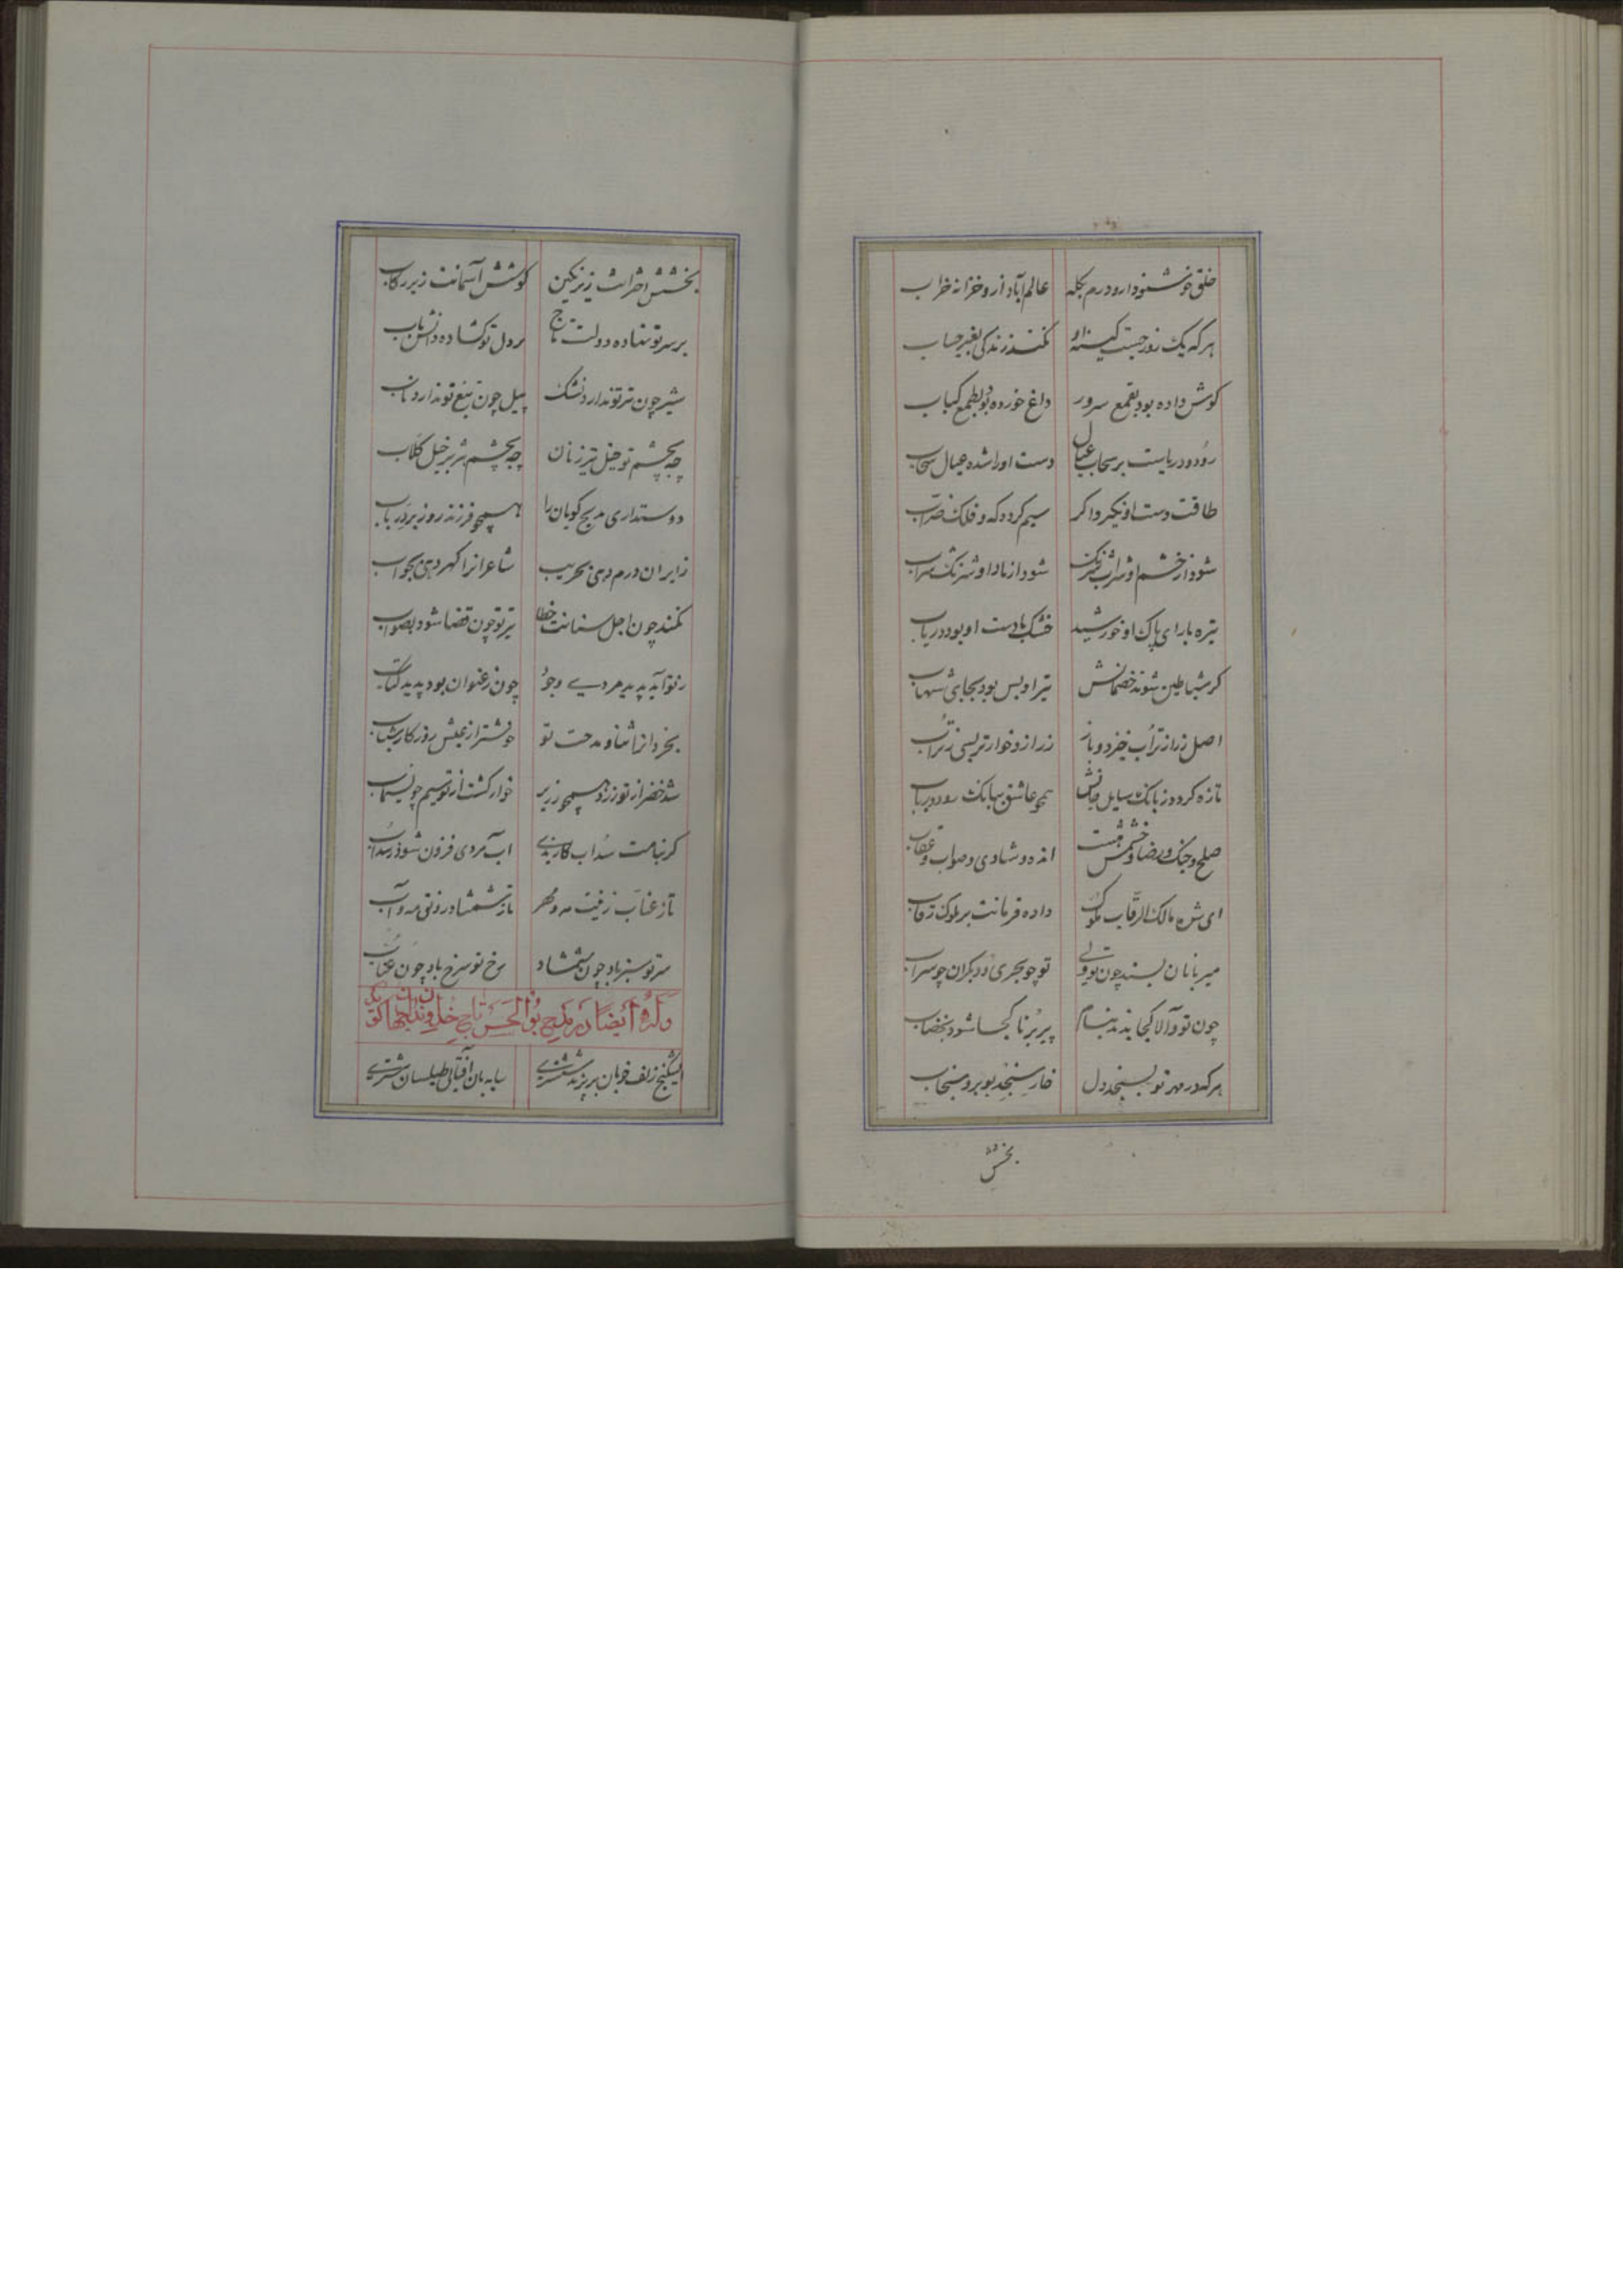 خلق خوشنود دارو درم بگله عالم آباد ازو خزانه خراب
هرکه یک روز جست کینه او نکند زندگی بغیر حساب
کوش داده بود بقمع سرور داغ خورده بود بطمع کباب
رود و دریاست بر سحاب عیال دست او را شده عیال سحاب
طاقت دست او نکیرد اکر سیم کردد که و فلک ضراب
شود از خشم او شراب شرنک شود از یاد او شرنک شراب
تیره با رای پاک او خورشید خشک با دست او بود دریاب
کر شیاطین شوند خصمانش تیر او بس بود بجای شهاب
اصل زر از تراب خیزد و باز زر ازو خوارتر بسی ز تراب
تازه کردد ز بانک سایل جانش همچو عاشق ببانک رود و رباب
صلح و جنک و رضا و خشمش هست انده و شادی و صواب و عقاب
ای شه مالک الرقاب ملوک داده فرمانت بر ملوک رقاب
میر بانان بسند چون تو ولی تو چو بحری و دیکران چو سراب
چون تو والا کجا بدند بنام پیر برنا کجا شود بخضاب
هرکه در مهر تو بسنجد دل خار سنجد بو برو سنجاب
بخشش
بخشش اخترانت زیر نکین کوشش آسمانت زیر رکاب
بر سر تو نهاده دولت تاج بر دل تو کشاده دانش باب
شیر چون تیر تو ندارد نشک پیل چون تیغ تو ندارد ناب
چه بچشم تو خیل تیر زنان چه بچشم هژبر خیل کلاب
دوستداری مدیح کویان را همچو فرزند روز بر در باب
زایران درم دهی بحریب شاعرانرا کهر دهی بجواب
نکند چون اجل سنانت خطا تیر تو چون قضا شود بصواب
ز تو آید پدید مردی و جود چون ز عنوان بود پدید کتاب
بخرد از ثنا و مدحت تو خوشتر از عیش روزکار شباب
شد خضر از تو زر همچو زریر خوار کشت از تو سیم چو سیماب
کر بنامت سداب کار بندی آب مردی فزون شود ز سداب
تا ز عناب زینت مه و مهر تا ز شمشاد رونق مه و آب
سر تو سبز باد چون شمشاد رخ تو سرخ باد چون عناب
وله ایضا در مدح بوالحسن تاج خداوندان جهانکوی
ای شکنج زلف خوبان بر پرند ششتری سایه بان آفتابی طیلسان مشتری